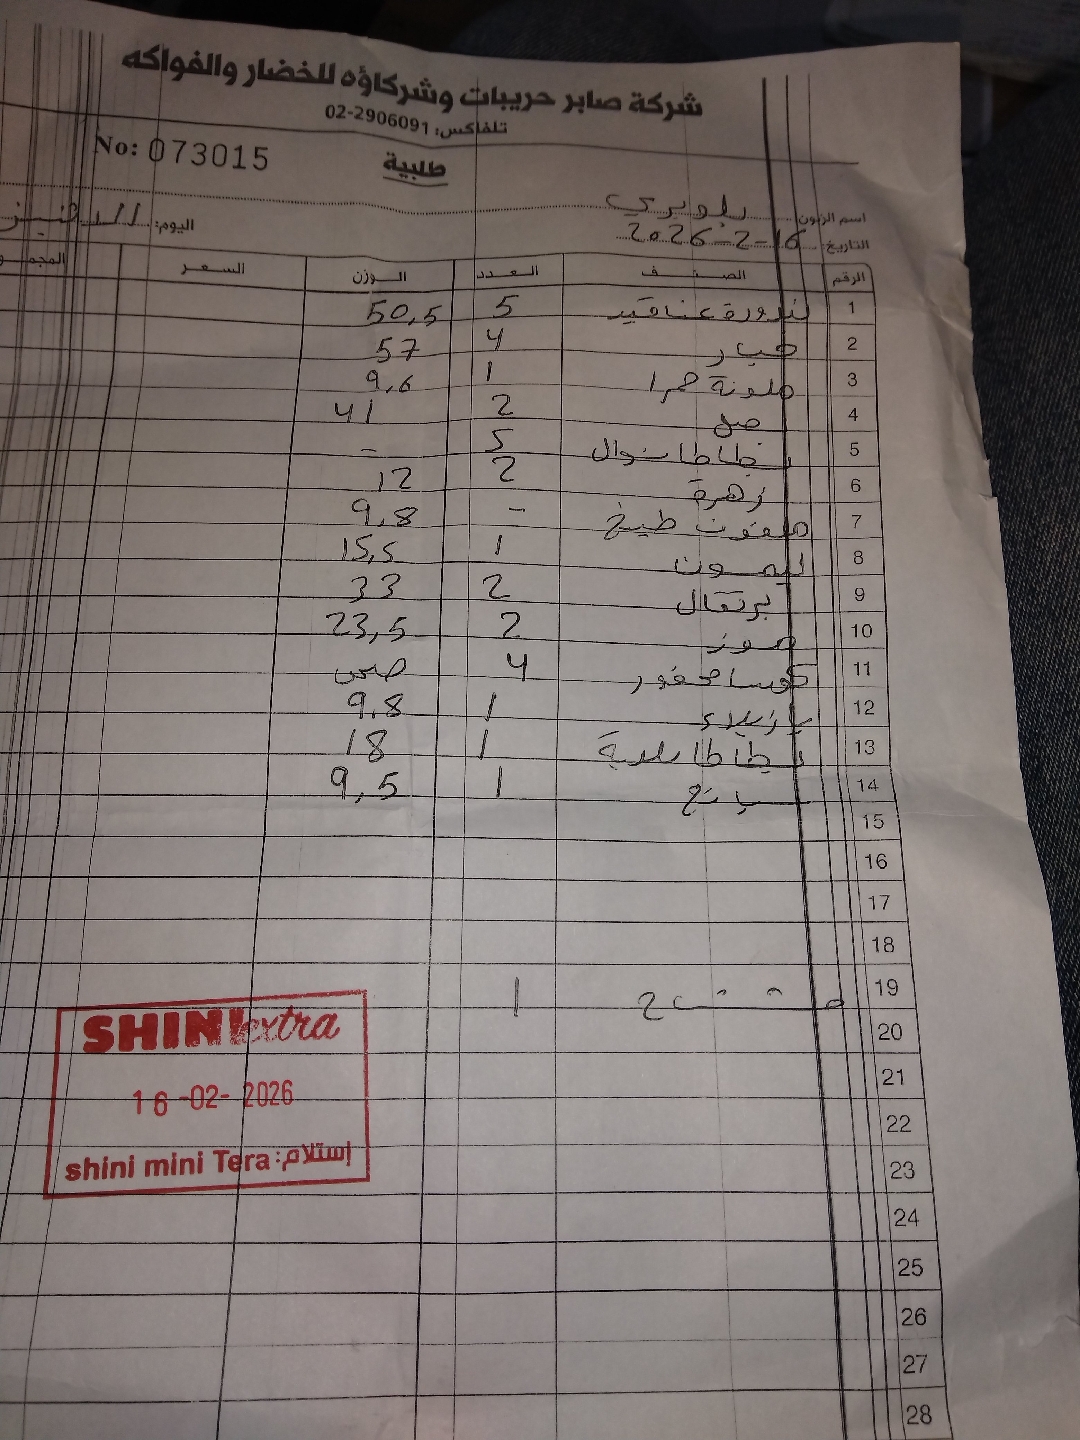 شركة صابر حريبات وشركاؤه للخضار والفواكه
تلفاكس: 02-2906091
No: 073015
طلبية
اسم الزبون
اليوم: الاثنين
التاريخ: 16-2-2026
الرقم الصنف العدد الوزن السعر المجمو
1 بندورة عناقيد 5 50,5
2 خيار 4 57
3 ملونة حمرا 1 9,6
4 بصل 2 41
5 بطاطا 5 -
6 زهرة 2 12
7 ملفوف طبيخ - 9,8
8 ليمون 1 15,5
9 برتقال 2 33
10 موز 2 23,5
11 كوسا محفور 4 صحن
12 بازيلاء 1 9,8
13 بطاطا بلدية 1 18
14 سبانخ 1 9,5
15
16
17
18
19 1
20
21
22
23
24
25
26
27
28
SHINI extra
16-02-2026
shini mini Tera :إستلام